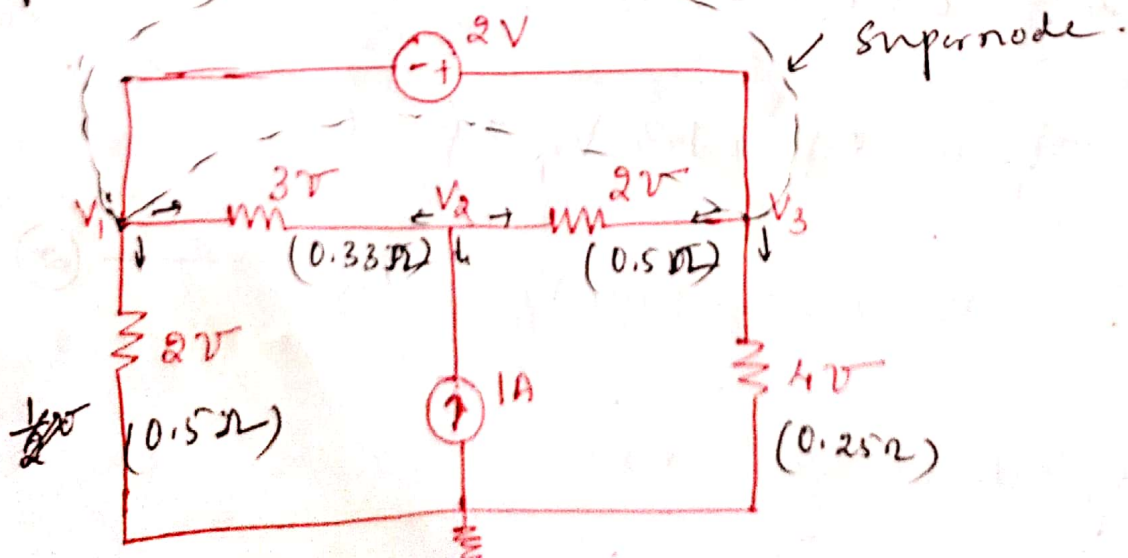 2V
Supernode.
- +
V1 3℧ V2 2℧ V3
(0.33Ω) (0.5Ω)
2℧ 1A 4℧
(0.5Ω) (0.25Ω)